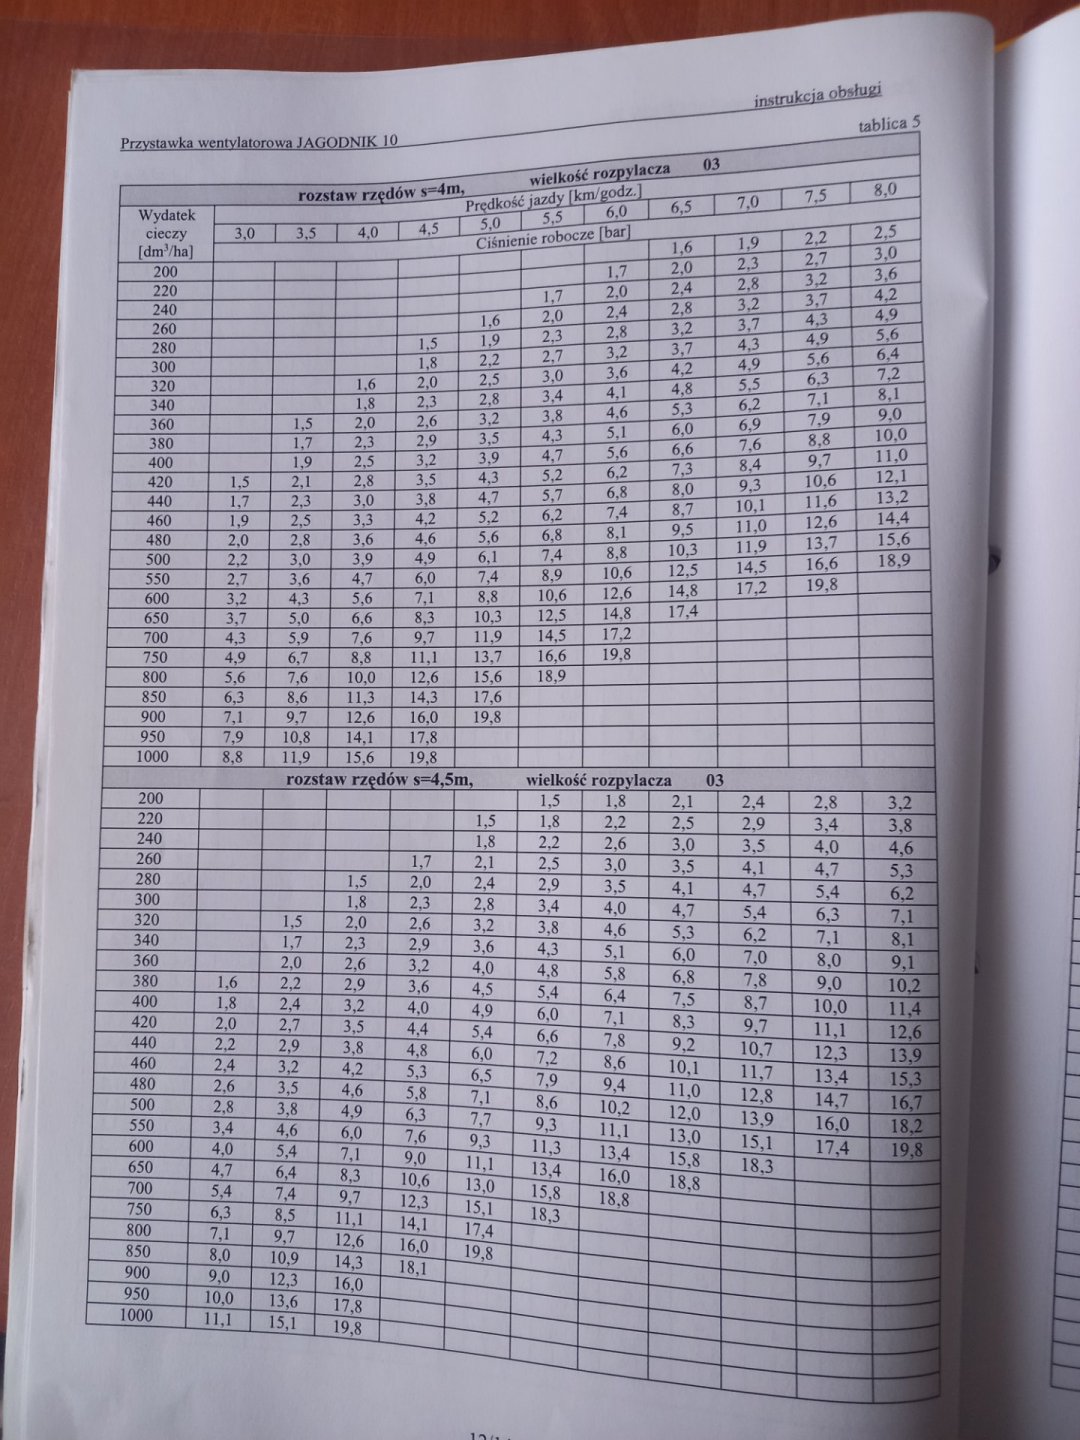 instrukcja obsługi
Przystawka wentylatorowa JAGODNIK 10
tablica 5
rozstaw rzędów s=4m, wielkość rozpylacza 03
Wydatek cieczy [dm³/ha] Prędkość jazdy [km/godz.]
3,0 3,5 4,0 4,5 5,0 5,5 6,0 6,5 7,0 7,5 8,0
Ciśnienie robocze [bar]
200 1,6 1,9 2,2 2,5
220 1,7 2,0 2,3 2,7 3,0
240 1,7 2,0 2,4 2,8 3,2 3,6
260 1,6 2,0 2,4 2,8 3,2 3,7 4,2
280 1,5 1,9 2,3 2,8 3,2 3,7 4,3 4,9
300 1,8 2,2 2,7 3,2 3,7 4,3 4,9 5,6
320 1,6 2,0 2,5 3,0 3,6 4,2 4,9 5,6 6,4
340 1,8 2,3 2,8 3,4 4,1 4,8 5,5 6,3 7,2
360 1,5 2,0 2,6 3,2 3,8 4,6 5,3 6,2 7,1 8,1
380 1,7 2,3 2,9 3,5 4,3 5,1 6,0 6,9 7,9 9,0
400 1,9 2,5 3,2 3,9 4,7 5,6 6,6 7,6 8,8 10,0
420 1,5 2,1 2,8 3,5 4,3 5,2 6,2 7,3 8,4 9,7 11,0
440 1,7 2,3 3,0 3,8 4,7 5,7 6,8 8,0 9,3 10,6 12,1
460 1,9 2,5 3,3 4,2 5,2 6,2 7,4 8,7 10,1 11,6 13,2
480 2,0 2,8 3,6 4,6 5,6 6,8 8,1 9,5 11,0 12,6 14,4
500 2,2 3,0 3,9 4,9 6,1 7,4 8,8 10,3 11,9 13,7 15,6
550 2,7 3,6 4,7 6,0 7,4 8,9 10,6 12,5 14,5 16,6 18,9
600 3,2 4,3 5,6 7,1 8,8 10,6 12,6 14,8 17,2 19,8
650 3,7 5,0 6,6 8,3 10,3 12,5 14,8 17,4
700 4,3 5,9 7,6 9,7 11,9 14,5 17,2
750 4,9 6,7 8,8 11,1 13,7 16,6 19,8
800 5,6 7,6 10,0 12,6 15,6 18,9
850 6,3 8,6 11,3 14,3 17,6
900 7,1 9,7 12,6 16,0 19,8
950 7,9 10,8 14,1 17,8
1000 8,8 11,9 15,6 19,8
rozstaw rzędów s=4,5m, wielkość rozpylacza 03
200 1,5 1,8 2,1 2,4 2,8 3,2
220 1,5 1,8 2,2 2,5 2,9 3,4 3,8
240 1,8 2,2 2,6 3,0 3,5 4,0 4,6
260 1,7 2,1 2,5 3,0 3,5 4,1 4,7 5,3
280 1,5 2,0 2,4 2,9 3,5 4,1 4,7 5,4 6,2
300 1,8 2,3 2,8 3,4 4,0 4,7 5,4 6,3 7,1
320 1,5 2,0 2,6 3,2 3,8 4,6 5,3 6,2 7,1 8,1
340 1,7 2,3 2,9 3,6 4,3 5,1 6,0 7,0 8,0 9,1
360 2,0 2,6 3,2 4,0 4,8 5,8 6,8 7,8 9,0 10,2
380 1,6 2,2 2,9 3,6 4,5 5,4 6,4 7,5 8,7 10,0 11,4
400 1,8 2,4 3,2 4,0 4,9 6,0 7,1 8,3 9,7 11,1 12,6
420 2,0 2,7 3,5 4,4 5,4 6,6 7,8 9,2 10,7 12,3 13,9
440 2,2 2,9 3,8 4,8 6,0 7,2 8,6 10,1 11,7 13,4 15,3
460 2,4 3,2 4,2 5,3 6,5 7,9 9,4 11,0 12,8 14,7 16,7
480 2,6 3,5 4,6 5,8 7,1 8,6 10,2 12,0 13,9 16,0 18,2
500 2,8 3,8 4,9 6,3 7,7 9,3 11,1 13,0 15,1 17,4 19,8
550 3,4 4,6 6,0 7,6 9,3 11,3 13,4 15,8 18,3
600 4,0 5,4 7,1 9,0 11,1 13,4 16,0 18,8
650 4,7 6,4 8,3 10,6 13,0 15,8 18,8
700 5,4 7,4 9,7 12,3 15,1 18,3
750 6,3 8,5 11,1 14,1 17,4
800 7,1 9,7 12,6 16,0 19,8
850 8,0 10,9 14,3 18,1
900 9,0 12,3 16,0
950 10,0 13,6 17,8
1000 11,1 15,1 19,8